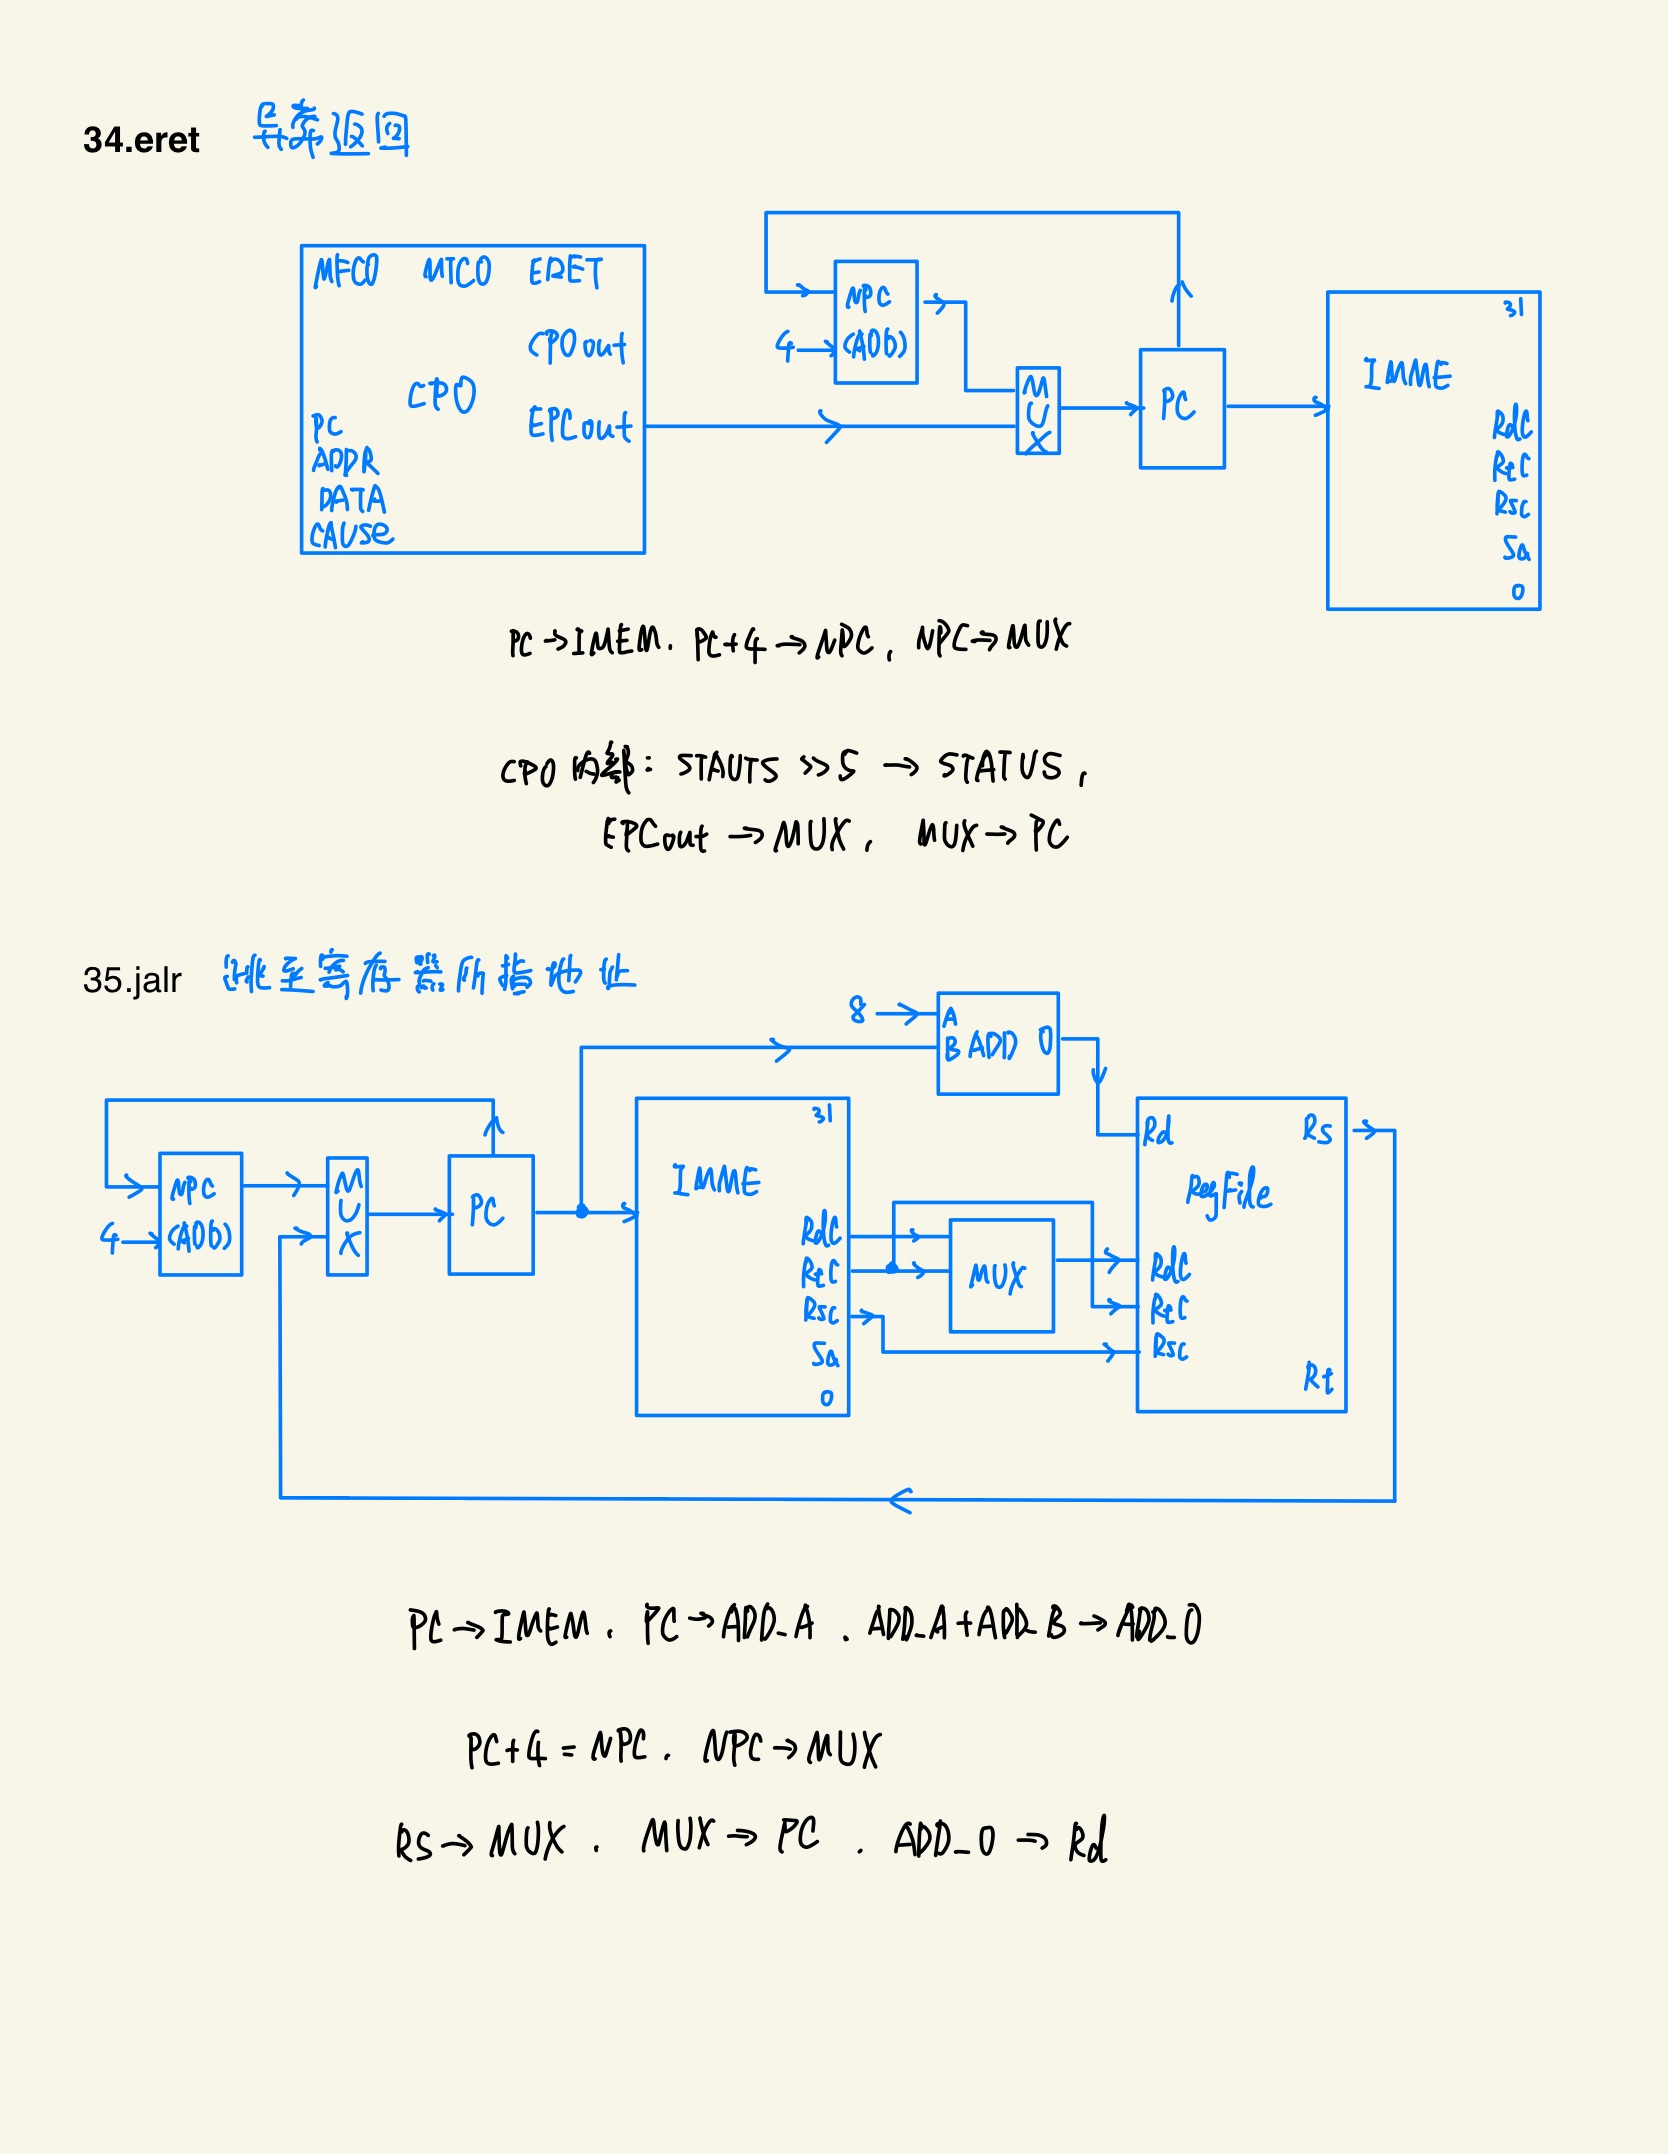 34.eret 异常返回
MFC0 MTC0 ERET
CP0out
CP0
EPCout
PC
ADDR
DATA
CAUSE
NPC
4 (ADD)
MUX
PC
31
IMME
RdC
RtC
Rsc
Sa
0
PC→IMEM. PC+4→NPC, NPC→MUX
CP0内部: STAUTS >>5 → STATUS,
EPCout → MUX, MUX→PC
35.jalr 跳至寄存器所指地址
8 A
B ADD O
NPC
4 (ADD)
MUX
PC
31
IMME
RdC
RtC
Rsc
Sa
0
MUX
Rd Rs
RegFile
RdC
RtC
Rsc
Rt
PC→IMEM. PC→ADD_A. ADD_A+ADD_B→ADD_O
PC+4=NPC. NPC→MUX
RS→MUX. MUX→PC. ADD_O→Rd